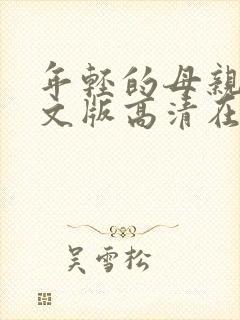 年轻的母亲
文版高清在
吴雪松